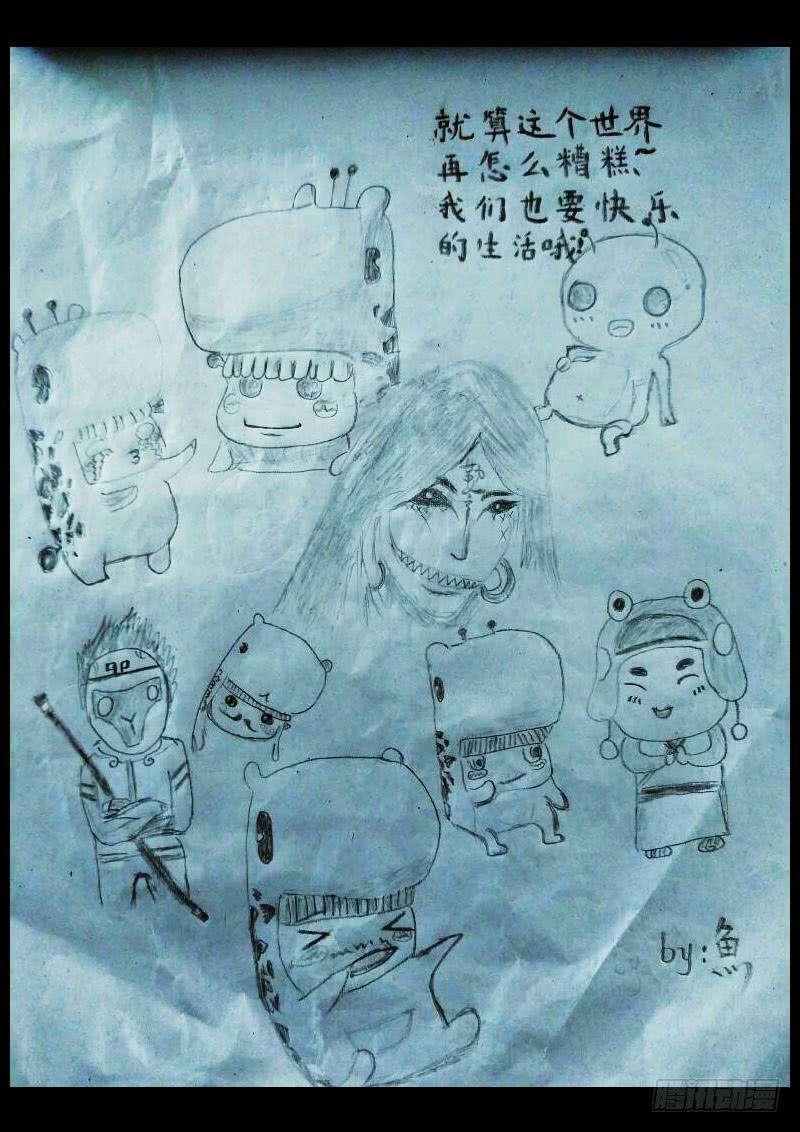 就算这个世界
再怎么糟糕~
我们也要快乐
的生活哦!
by:魚
腾讯动漫